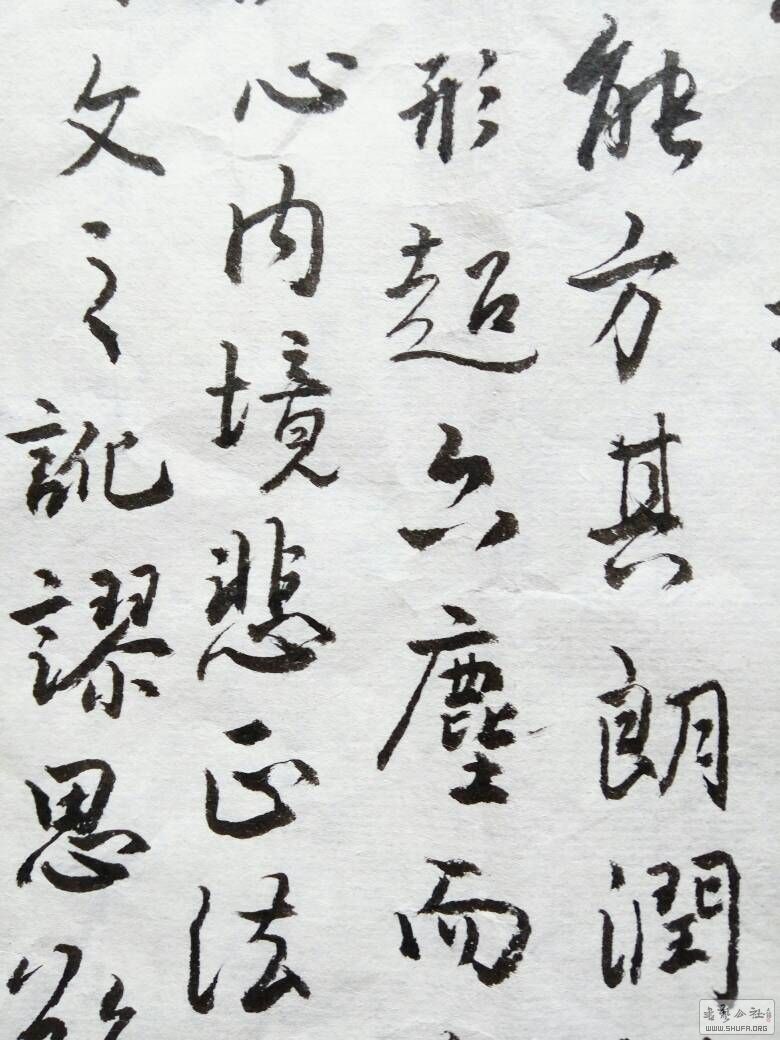 能方其朗潤
形超六塵而
心内境悲正法
文之訛謬思欲
WWW.SHUFA.ORG